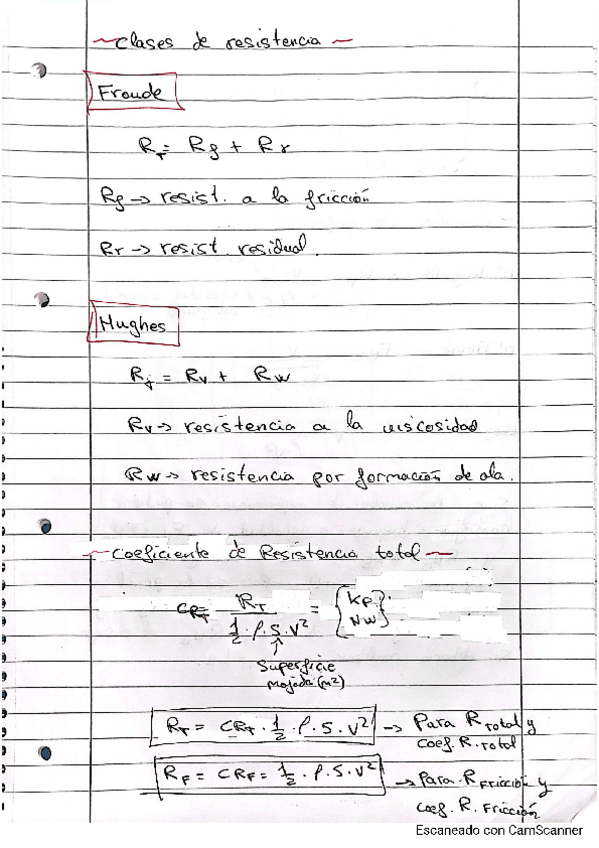 ~ clases de resistencia ~
Froude
R_T = Rf + Rr
Rf → resist. a la fricción
Rr → resist. residual.
Hughes
R_T = Rv + Rw
Rv → resistencia a la viscosidad
Rw → resistencia por formación de ola.
~ Coeficiente de Resistencia total ~
CR_T = R_T / (1/2 · ρ · S · V²) = { Kp } { Nw }
↑
Superficie
mojada (m2)
R_T = CR_T · 1/2 · ρ · S · V² → Para R total y
coef. R. total
R_F = CR_F = 1/2 · ρ · S · V² → Para R Fricción y
coef. R. Fricción
Escaneado con CamScanner